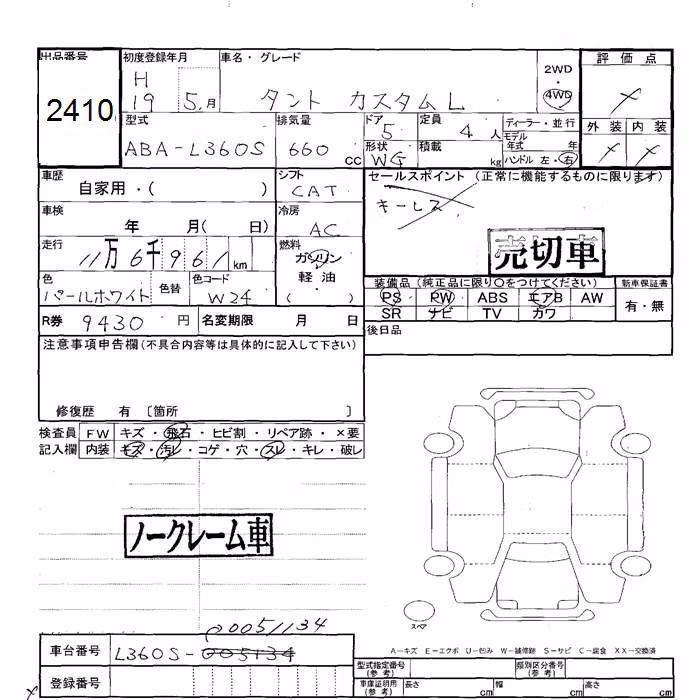 出品番号 初度登録年月 車名・グレード 評価点
2410 H 19 5月 タント カスタムL 2WD・4WD ×
型式 排気量 ドア 定員 ディーラー・並行 外装 内装
ABA-L360S 660cc 5 4人 モデル年式 年 × ×
形状 WG 積載 kg ハンドル 左・右
車歴 シフト セールスポイント (正常に機能するものに限ります)
自家用・( ) CAT キーレス
車検 年 月( 日) 冷房 AC
走行 燃料 売切車
11万6千961km ガソリン
軽油
( )
色 色替 色コード 装備品 (純正品に限り○をつけてください) 新車保証書
パールホワイト W24 PS PW ABS エアB AW 有・無
SR ナビ TV カワ
R券 9430円 名変期限 月 日 後日品
注意事項申告欄 (不具合内容等は具体的に記入して下さい)
修復歴 有 〔箇所 〕
検査員 FW キズ・飛石・ヒビ割・リペア跡・×要
記入欄 内装 キズ・汚レ・コゲ・穴・スレ・キレ・破レ
ノークレーム車
スペア
00051134
A−キズ E−エクボ U−凹み W−補修跡 S−サビ C−腐食 XX−交換済
車台番号 L360S-005134
型式指定番号(参考) 類別区分番号(参考)
登録番号 車庫証明用(参考) 長さ cm 幅 cm 高さ cm
×